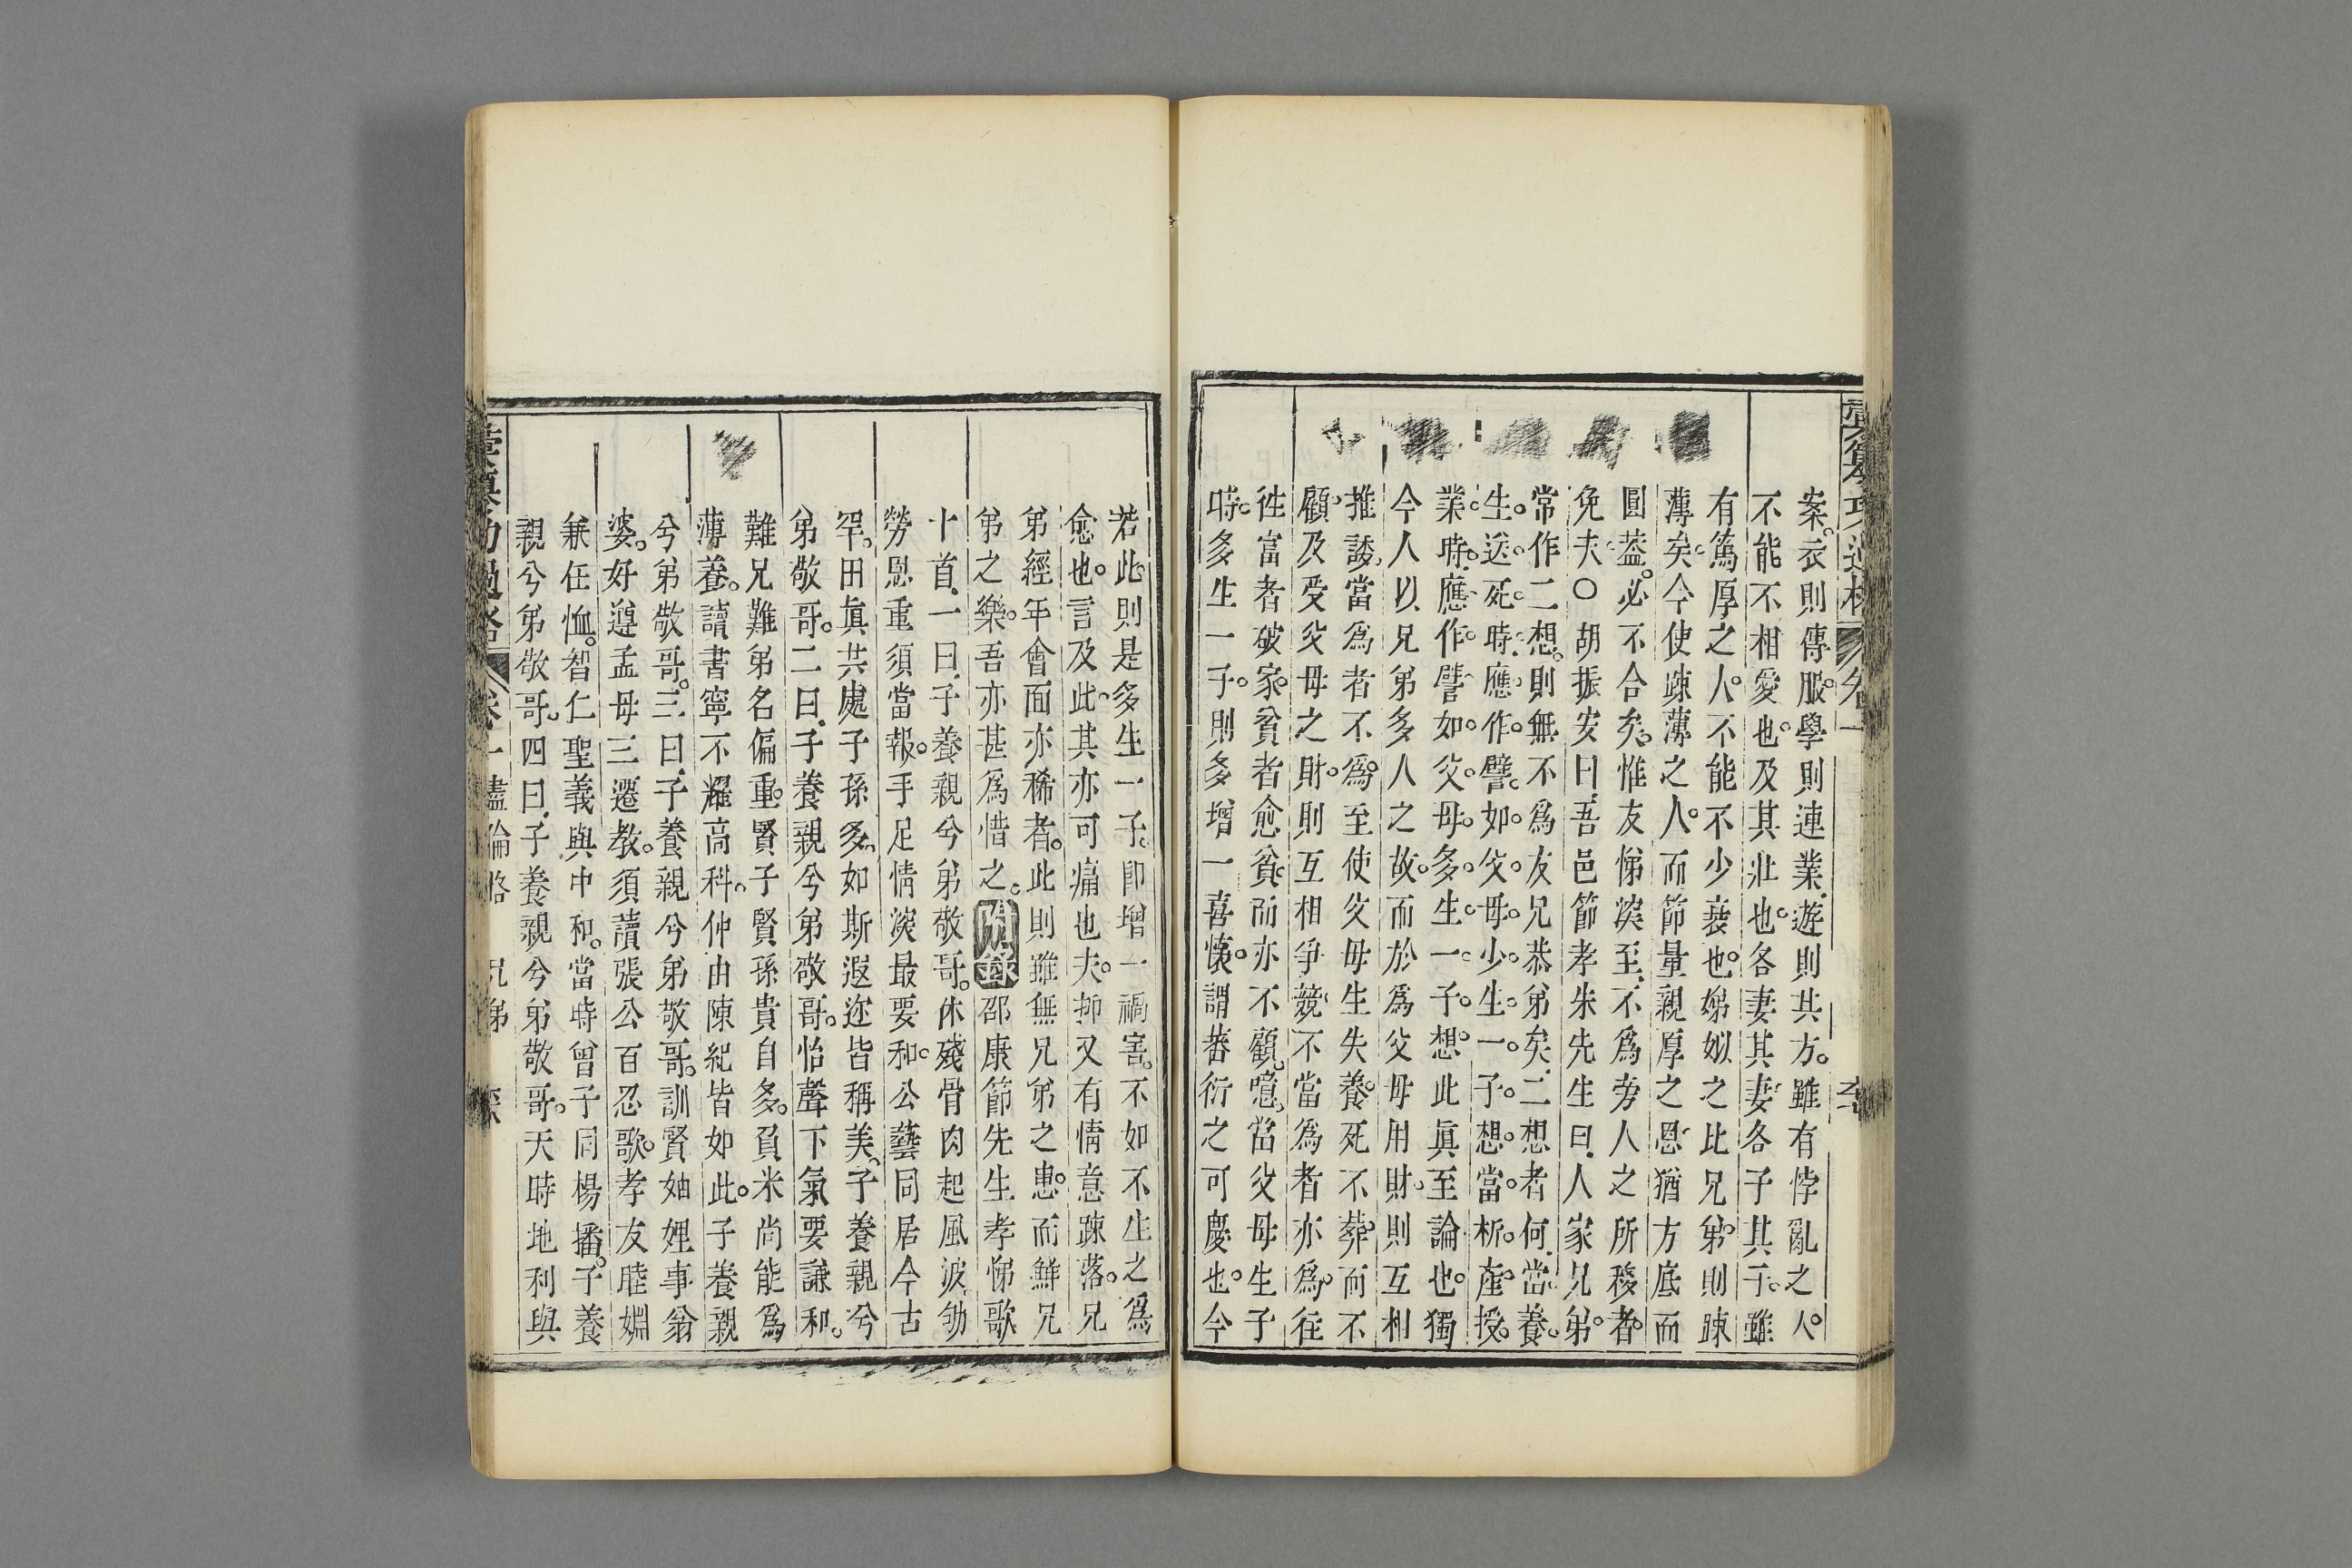 案。衣則傳服。學則連業。遊則共方。雖有悖亂之人。
不能不相愛也。及其壯也。各妻其妻。各子其子。雖
有篤厚之人。不能不少衰也。娣姒之比兄弟。則踈
薄矣。今使踈薄之人。而節量親厚之恩。猶方底而
圓葢。必不合矣。惟友悌深至。不爲旁人之所移者。
免夫〇胡振安曰。吾邑節孝朱先生曰。人家兄弟。
常作二想。則無不爲友兄恭弟矣。二想者何。當養
生。送死。時。應作。譬如父母少生一子。想當析產授
業。時。應作。譬如父母多生一子。想此眞至論也。獨
今人以兄弟多人之故。而於爲父母用財。則互相
推諉。當爲者不爲。至使父母生失養。死不葬。而不
顧。及受父母之財。則互相爭競。不當爲者亦爲。徃
徃富者破家。貧者愈貧。而亦不顧。噫。當父母生子
時。多生一子。則多增一喜懷。謂蕃衍之可慶也。今
若此。則是多生一子。卽增一禍害。不如不生之爲
愈也。言及此。其亦可痛也夫。抑又有情意踈落。兄
弟經年會面亦稀者。此則雖無兄弟之患。而鮮兄
弟之樂。吾亦甚爲惜之。附錄邵康節先生孝悌歌
十首。一曰。子養親兮弟敬哥。休殘骨肉起風波。劬
勞恩重須當報。手足情深最要和。公藝同居今古
罕。田眞共處子孫多。如斯遐迩皆稱美。子養親兮
弟敬哥。二曰。子養親兮弟敬哥。怡聲下氣要謙和。
難兄難弟名偏重。賢子賢孫貴自多。負米尚能爲
薄養。讀書寧不耀高科。仲由陳紀皆如此。子養親
兮弟敬哥。三曰。子養親兮弟敬哥。訓賢妯娌事翁
婆。好遵孟母三遷敎。須讀張公百忍歌。孝友睦婣
兼任恤。智仁聖義與中和。當時曾子同楊播。子養
親兮弟敬哥。四曰。子養親兮弟敬哥。天時地利與